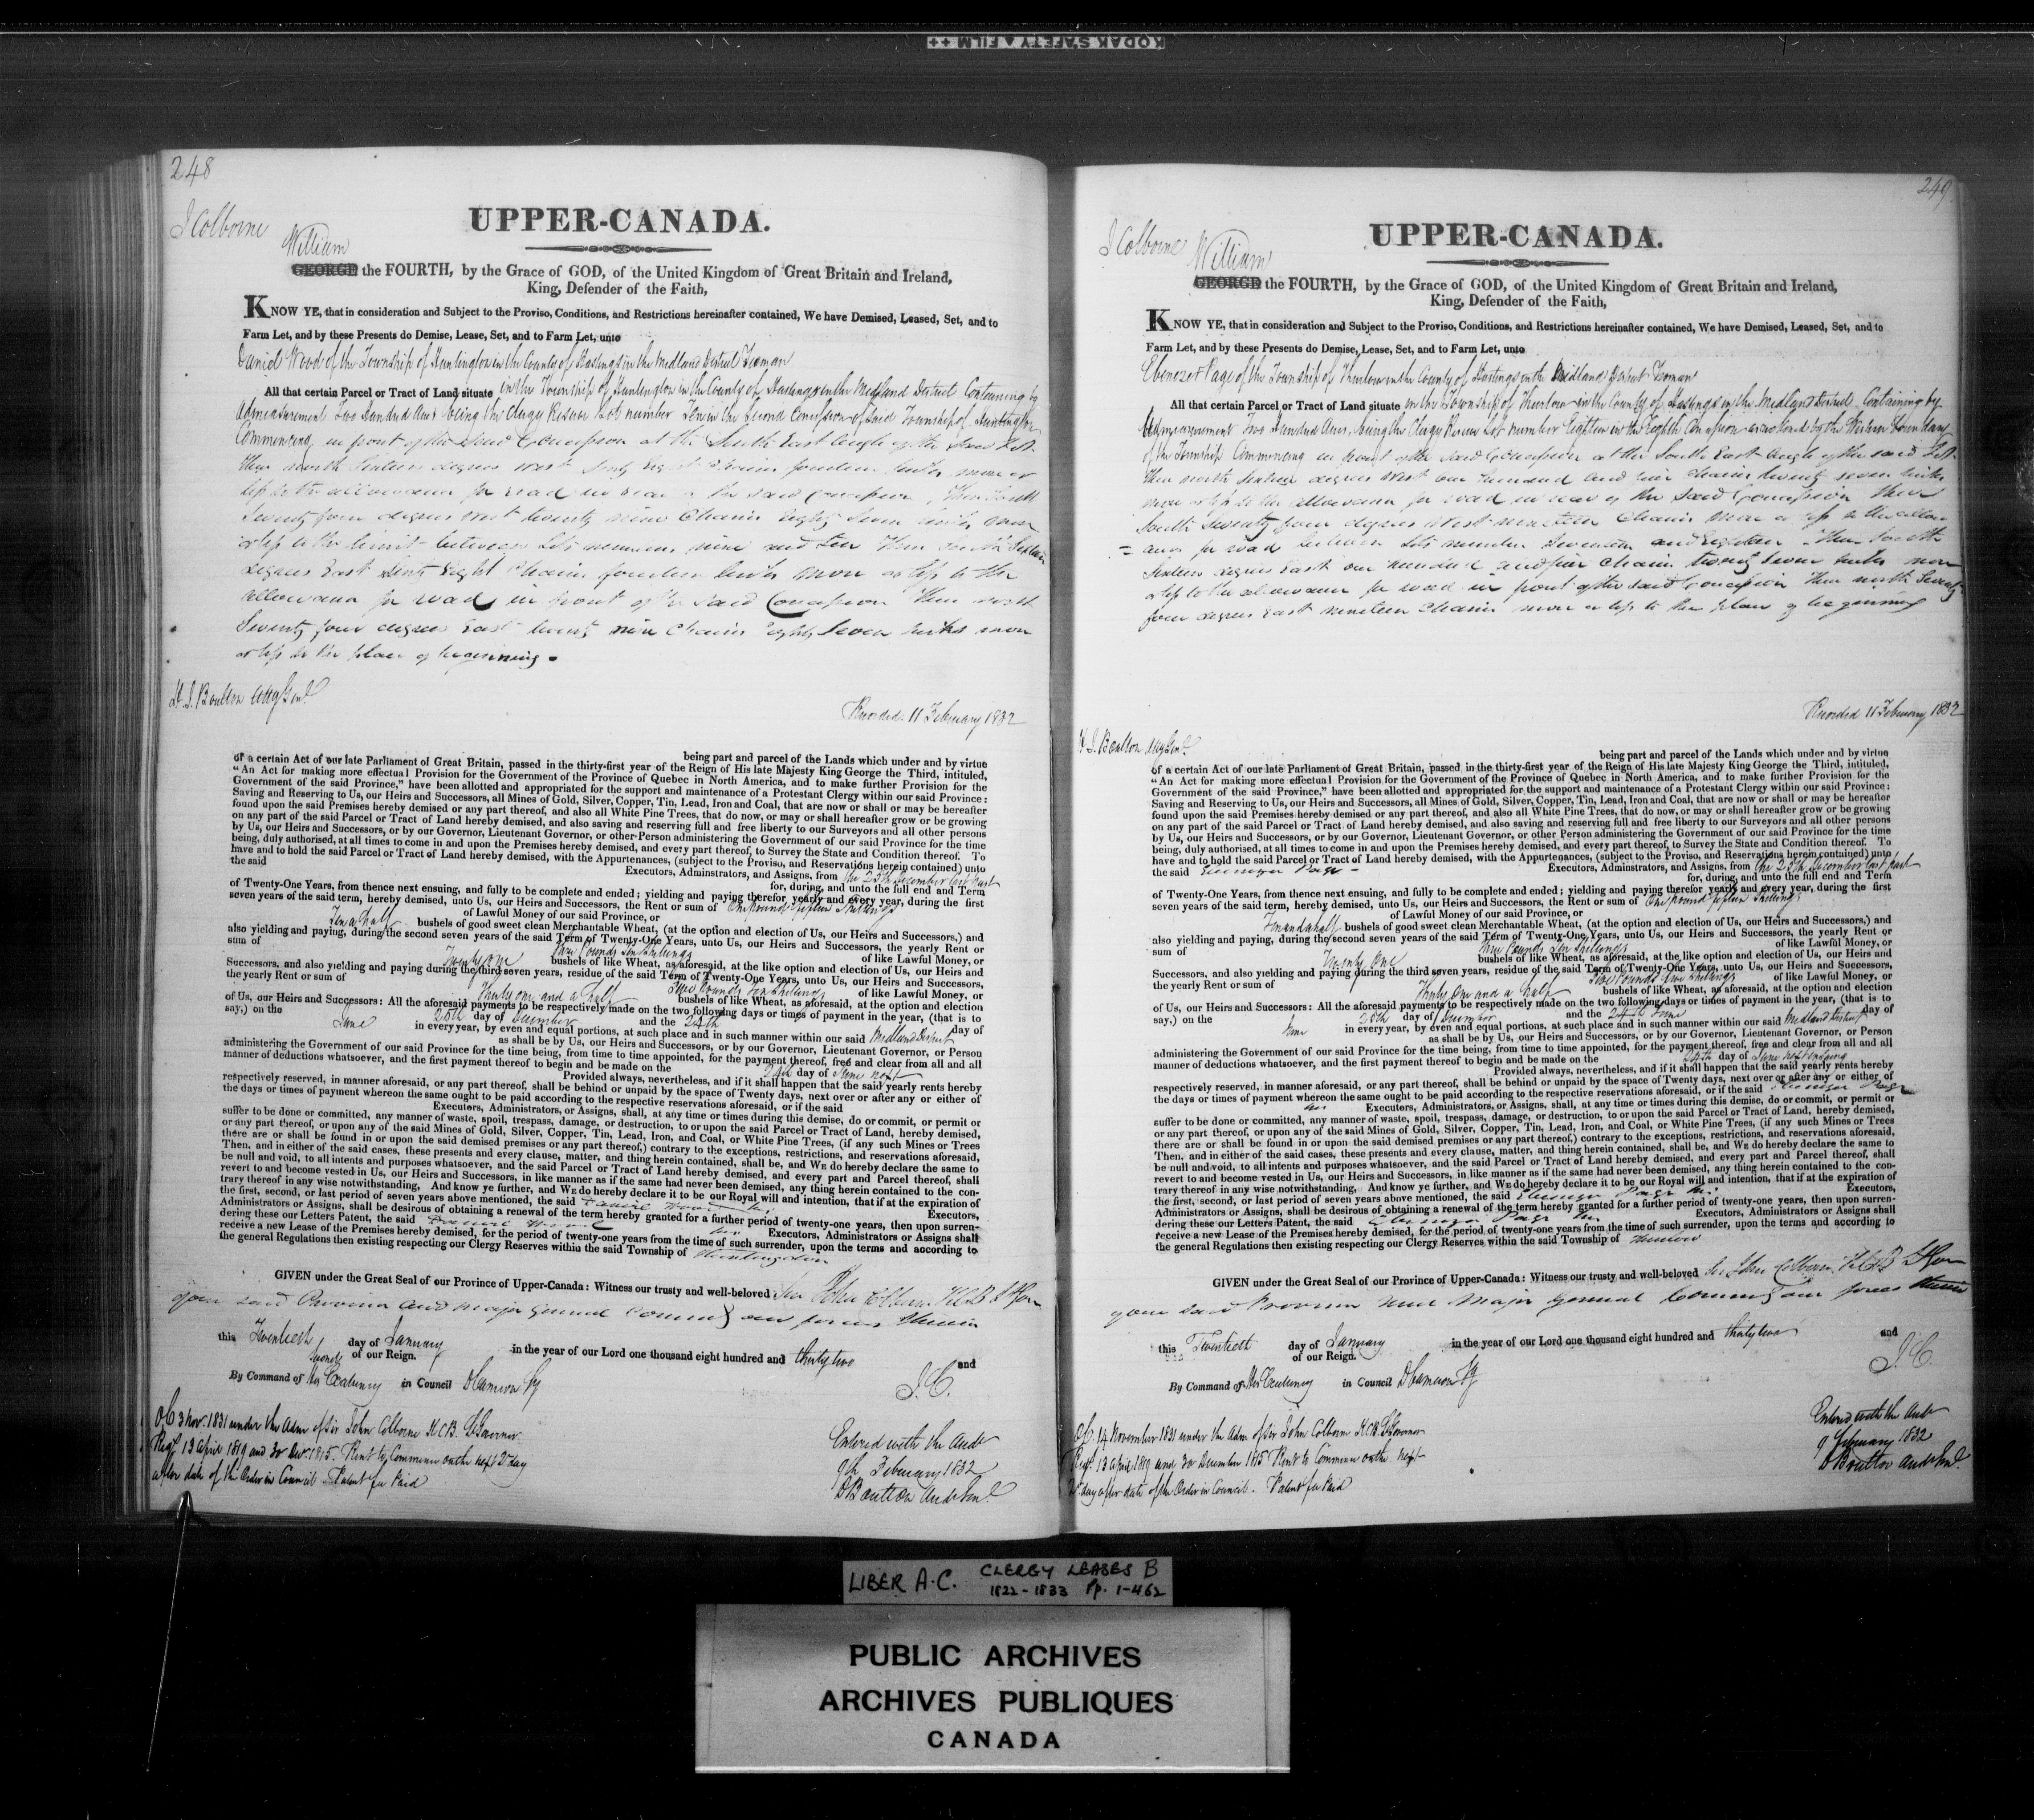 KODAK SAFETY FILM ++
248
J Colborne
UPPER-CANADA.
William
GEORGE the FOURTH, by the Grace of GOD, of the United Kingdom of Great Britain and Ireland,
King, Defender of the Faith,
KNOW YE, that in consideration and Subject to the Proviso, Conditions, and Restrictions hereinafter contained, We have Demised, Leased, Set, and to
Farm Let, and by these Presents do Demise, Lease, Set, and to Farm Let, unto
Daniel Wood of the Township of Huntingdon in the County of Hastings in the Midland District Yeoman
All that certain Parcel or Tract of Land situate in the Township of Huntingdon in the County of Hastings in the Midland District Containing by
Admeasurement Two Hundred Acres being the Clergy Reserve Lot number Ten in the Second Concession of said Township of Huntingdon
Commencing in front of the said Concession at the South East angle of the said Lot
then north Sixteen degrees west Sixty Eight Chains fourteen links more or
less to the allowance for road in rear of the said Concession, then South
Seventy four degrees west twenty nine Chains Eighty Seven links more
or less to the limit between Lots numbers nine and ten then South Sixteen
degrees East Sixty Eight Chains fourteen links more or less to the
allowance for road in front of the said Concession then north
Seventy four degrees East twenty nine Chains Eighty Seven links more
or less to the place of beginning.
H. J. Boulton Atty Genl.
Recorded 11 February 1832
being part and parcel of the Lands which under and by virtue
of a certain Act of our late Parliament of Great Britain, passed in the thirty-first year of the Reign of His late Majesty King George the Third, intituled,
“An Act for making more effectual Provision for the Government of the Province of Quebec in North America, and to make further Provision for the
Government of the said Province,” have been allotted and appropriated for the support and maintenance of a Protestant Clergy within our said Province:
Saving and Reserving to Us, our Heirs and Successors, all Mines of Gold, Silver, Copper, Tin, Lead, Iron and Coal, that are now or shall or may be hereafter
found upon the said Premises hereby demised or any part thereof, and also all White Pine Trees, that do now, or may or shall hereafter grow or be growing
on any part of the said Parcel or Tract of Land hereby demised, and also saving and reserving full and free liberty to our Surveyors and all other persons
by Us, our Heirs and Successors, or by our Governor, Lieutenant Governor, or other Person administering the Government of our said Province for the time
being, duly authorised, at all times to come in and upon the Premises hereby demised, and every part thereof, to Survey the State and Condition thereof. To
have and to hold the said Parcel or Tract of Land hereby demised, with the Appurtenances, (subject to the Proviso, and Reservations herein contained) unto
the said Executors, Adminstrators, and Assigns, from the 25th December last past
for, during, and unto the full end and Term
of Twenty-One Years, from thence next ensuing, and fully to be complete and ended; yielding and paying therefor yearly and every year, during the first
seven years of the said term, hereby demised, unto Us, our Heirs and Successors, the Rent or sum of One Pound Fifteen Shillings
of Lawful Money of our said Province, or
Ten & a half bushels of good sweet clean Merchantable Wheat, (at the option and election of Us, our Heirs and Successors,) and
also yielding and paying, during the second seven years of the said Term of Twenty-One Years, unto Us, our Heirs and Successors, the yearly Rent or
sum of Three Pounds Ten Shillings of like Lawful Money, or
Twenty One bushels of like Wheat, as aforesaid, at the like option and election of Us, our Heirs and
Successors, and also yielding and paying during the third seven years, residue of the said Term of Twenty-One Years, unto Us, our Heirs and Successors,
the yearly Rent or sum of Five Pounds five Shillings of like Lawful Money, or
Thirty one and a half bushels of like Wheat, as aforesaid, at the option and election
of Us, our Heirs and Successors: All the aforesaid payments to be respectively made on the two following days or times of payment in the year, (that is to
say,) on the 25th day of December and the 24th day of
June in every year, by even and equal portions, at such place and in such manner within our said Midland District
as shall be by Us, our Heirs and Successors, or by our Governor, Lieutenant Governor, or Person
administering the Government of our said Province for the time being, from time to time appointed, for the payment thereof, freed and clear from all and all
manner of deductions whatsoever, and the first payment thereof to begin and be made on the 24th day of June next
Provided always, nevertheless, and if it shall happen that the said yearly rents hereby
respectively reserved, in manner aforesaid, or any part thereof, shall be behind or unpaid by the space of Twenty days, next over or after any or either of
the days or times of payment whereon the same ought to be paid according to the respective reservations aforesaid, or if the said
Executors, Administrators, or Assigns, shall, at any time or times during this demise, do or commit, or permit or
suffer to be done or committed, any manner of waste, spoil, trespass, damage, or destruction, to or upon the said Parcel or Tract of Land, hereby demised,
or any part thereof, or upon any of the said Mines of Gold, Silver, Copper, Tin, Lead, Iron, and Coal, or White Pine Trees, (if any such Mines or Trees
there are or shall be found in or upon the said demised premises or any part thereof,) contrary to the exceptions, restrictions, and reservations aforesaid,
Then, and in either of the said cases, these presents and every clause, matter, and thing herein contained, shall be, and WE do hereby declare the same to
be null and void, to all intents and purposes whatsoever, and the said Parcel or Tract of Land hereby demised, and every part and Parcel thereof, shall
revert to and become vested in Us, our Heirs and Successors, in like manner as if the same had never been demised, any thing herein contained to the con-
trary thereof in any wise notwithstanding. And know ye further, and WE do hereby declare it to be our Royal will and intention, that if at the expiration of
the first, second, or last period of seven years above mentioned, the said Daniel Wood his Executors,
Administrators or Assigns, shall be desirous of obtaining a renewal of the term hereby granted for a further period of twenty-one years, then upon surren-
dering these our Letters Patent, the said Daniel Wood his Executors, Administrators or Assigns shall
receive a new Lease of the Premises hereby demised, for the period of twenty-one years from the time of such surrender, upon the terms and according to
the general Regulations then existing respecting our Clergy Reserves within the said Township of Huntingdon
GIVEN under the Great Seal of our Province of Upper-Canada: Witness our trusty and well-beloved Sir John Colborne KCB Lt Gov
of our said Province and Major General Commg our forces therein
this Twentieth day of January in the year of our Lord one thousand eight hundred and thirty two and
Second of our Reign.
J. C.
By Command of His Excellency in Council D Cameron Sy
OC 3 Nov. 1831 under the Adm of Sir John Colborne KCB. Lt Governor
Regs. 13 April 1819 and 30 Decr. 1815. Rent to Commence on the next Qr day
after date of the Order in Council. Patent fee Paid
Entered with the Audr
9th February 1832
D Boulton Aud Genl.
249
J Colborne
UPPER-CANADA.
William
GEORGE the FOURTH, by the Grace of GOD, of the United Kingdom of Great Britain and Ireland,
King, Defender of the Faith,
KNOW YE, that in consideration and Subject to the Proviso, Conditions, and Restrictions hereinafter contained, We have Demised, Leased, Set, and to
Farm Let, and by these Presents do Demise, Lease, Set, and to Farm Let, unto
Ebenezer Page of the Township of Thurlow in the County of Hastings in the Midland District Yeoman
All that certain Parcel or Tract of Land situate in the Township of Thurlow in the County of Hastings in the Midland District Containing by
Admeasurement Two Hundred Acres, being the Clergy Reserve Lot number Eighteen in the Eighth Concession as numbered by the Western boundary
of the Township Commencing in front of the said Concession at the South East angle of the said Lot
then north Sixteen degrees West one hundred and five chains twenty seven links
more or less to the allowance for road in rear of the said Concession then
South Seventy four degrees West nineteen Chains more or less to the allow
= ance for road between Lots number Seventeen and Eighteen then South
Sixteen degrees East one hundred and five chains twenty Seven links more
or less to the allowance for road in front of the said Concession then north Seventy
four degrees East nineteen Chains more or less to the place of beginning
Recorded 11 February 1832
H. J. Boulton Atty Genl.
being part and parcel of the Lands which under and by virtue
of a certain Act of our late Parliament of Great Britain, passed in the thirty-first year of the Reign of His late Majesty King George the Third, intituled,
“An Act for making more effectual Provision for the Government of the Province of Quebec in North America, and to make further Provision for the
Government of the said Province,” have been allotted and appropriated for the support and maintenance of a Protestant Clergy within our said Province:
Saving and Reserving to Us, our Heirs and Successors, all Mines of Gold, Silver, Copper, Tin, Lead, Iron and Coal, that are now or shall or may be hereafter
found upon the said Premises hereby demised or any part thereof, and also all White Pine Trees, that do now, or may or shall hereafter grow or be growing
on any part of the said Parcel or Tract of Land hereby demised, and also saving and reserving full and free liberty to our Surveyors and all other persons
by Us, our Heirs and Successors, or by our Governor, Lieutenant Governor, or other Person administering the Government of our said Province for the time
being, duly authorised, at all times to come in and upon the Premises hereby demised, and every part thereof, to Survey the State and Condition thereof. To
have and to hold the said Parcel or Tract of Land hereby demised, with the Appurtenances, (subject to the Proviso, and Reservations herein contained) unto
the said Ebenezer Page - Executors, Adminstrators, and Assigns, from the 25th December last past
for, during, and unto the full end and Term
of Twenty-One Years, from thence next ensuing, and fully to be complete and ended; yielding and paying therefor yearly and every year, during the first
seven years of the said term, hereby demised, unto Us, our Heirs and Successors, the Rent or sum of One pound fifteen Shillings
of Lawful Money of our said Province, or
Ten and a half bushels of good sweet clean Merchantable Wheat, (at the option and election of Us, our Heirs and Successors,) and
also yielding and paying, during the second seven years of the said Term of Twenty-One Years, unto Us, our Heirs and Successors, the yearly Rent or
sum of Three Pounds Ten Shillings of like Lawful Money, or
Twenty One bushels of like Wheat, as aforesaid, at the like option and election of Us, our Heirs and
Successors, and also yielding and paying during the third seven years, residue of the said Term of Twenty-One Years, unto Us, our Heirs and Successors,
the yearly Rent or sum of Five Pounds five Shillings of like Lawful Money, or
Thirty One and a half bushels of like Wheat, as aforesaid, at the option and election
of Us, our Heirs and Successors: All the aforesaid payments to be respectively made on the two following days or times of payment in the year, (that is to
say,) on the 25th day of December and the 24th June day of
June in every year, by even and equal portions, at such place and in such manner within our said Midland District
as shall be by Us, our Heirs and Successors, or by our Governor, Lieutenant Governor, or Person
administering the Government of our said Province for the time being, from time to time appointed, for the payment thereof, freed and clear from all and all
manner of deductions whatsoever, and the first payment thereof to begin and be made on the 24th day of June next ensuing
Provided always, nevertheless, and if it shall happen that the said yearly rents hereby
respectively reserved, in manner aforesaid, or any part thereof, shall be behind or unpaid by the space of Twenty days, next over or after any or either of
the days or times of payment whereon the same ought to be paid according to the respective reservations aforesaid, or if the said Ebenezer Page
his Executors, Administrators, or Assigns, shall, at any time or times during this demise, do or commit, or permit or
suffer to be done or committed, any manner of waste, spoil, trespass, damage, or destruction, to or upon the said Parcel or Tract of Land, hereby demised,
or any part thereof, or upon any of the said Mines of Gold, Silver, Copper, Tin, Lead, Iron, and Coal, or White Pine Trees, (if any such Mines or Trees
there are or shall be found in or upon the said demised premises or any part thereof,) contrary to the exceptions, restrictions, and reservations aforesaid,
Then, and in either of the said cases, these presents and every clause, matter, and thing herein contained, shall be, and WE do hereby declare the same to
be null and void, to all intents and purposes whatsoever, and the said Parcel or Tract of Land hereby demised, and every part and Parcel thereof, shall
revert to and become vested in Us, our Heirs and Successors, in like manner as if the same had never been demised, any thing herein contained to the con-
trary thereof in any wise notwithstanding. And know ye further, and WE do hereby declare it to be our Royal will and intention, that if at the expiration of
the first, second, or last period of seven years above mentioned, the said Ebenezer Page his Executors,
Administrators or Assigns, shall be desirous of obtaining a renewal of the term hereby granted for a further period of twenty-one years, then upon surren-
dering these our Letters Patent, the said Ebenezer Page his Executors, Administrators or Assigns shall
receive a new Lease of the Premises hereby demised, for the period of twenty-one years from the time of such surrender, upon the terms and according to
the general Regulations then existing respecting our Clergy Reserves within the said Township of Thurlow
GIVEN under the Great Seal of our Province of Upper-Canada: Witness our trusty and well-beloved Sir John Colborne KCB Lt Gov
of our said Province and Major General Commg our forces therein
this Twentieth day of January in the year of our Lord one thousand eight hundred and thirty two and
of our Reign.
J. C.
By Command of His Excellency in Council D Cameron Sy
OC. 14 November 1831 under the Adm. of Sir John Colborne KCB. Lt Governor
Regs. 13 April 1819 and 30 December 1815 Rent to Commence on the next
Qr day after date of the Order in Council. Patent fee Paid
Entered with the Audr
9 February 1832
D Boulton Aud Genl.
LIBER A.C. CLERGY LEASES B
1822-1833 Pp. 1-462
PUBLIC ARCHIVES
ARCHIVES PUBLIQUES
CANADA